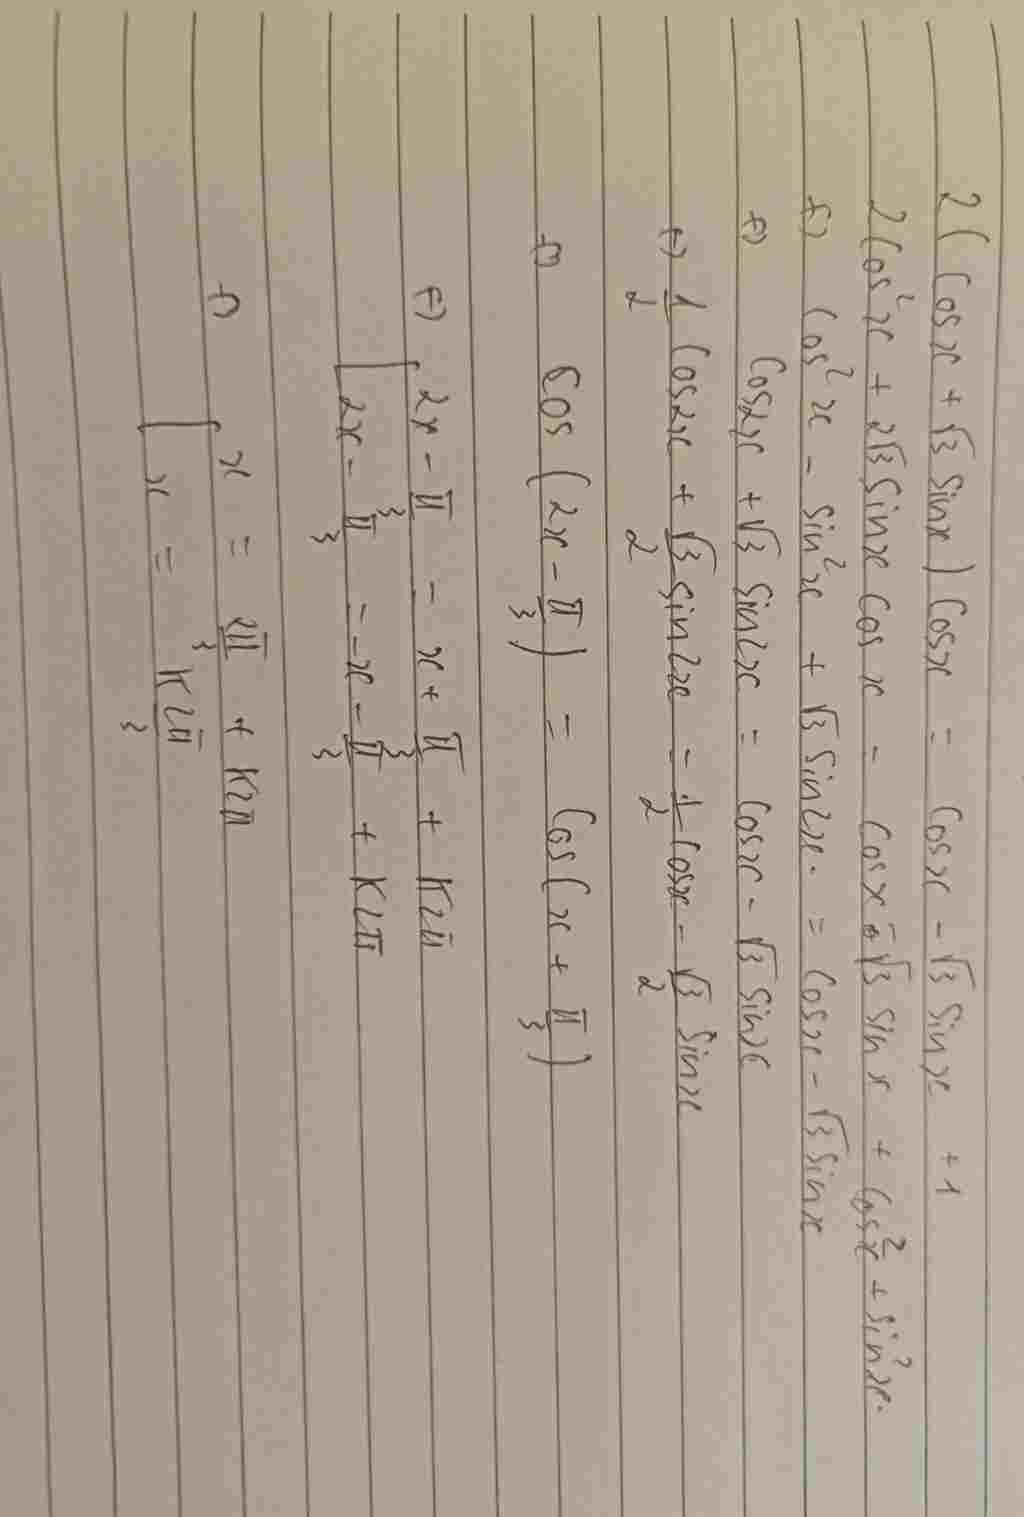 2(cosx + √3 sinx) cosx = cosx - √3 sinx + 1
2cos²x + 2√3 sinx cosx = cosx - √3 sinx + cos²x + sin²x.
⇔ cos²x - sin²x + √3 sin2x. = cosx - √3 sinx
⇔ cos2x + √3 sin2x = cosx - √3 sinx
⇔ 1/2 cos2x + √3/2 sin2x = 1/2 cosx - √3/2 sinx
⇔ cos(2x - π/3) = cos(x + π/3)
⇔ [ 2x - π/3 = x + π/3 + k2π
2x - π/3 = -x - π/3 + k2π
⇔ [ x = 2π/3 + k2π
x = k2π/3